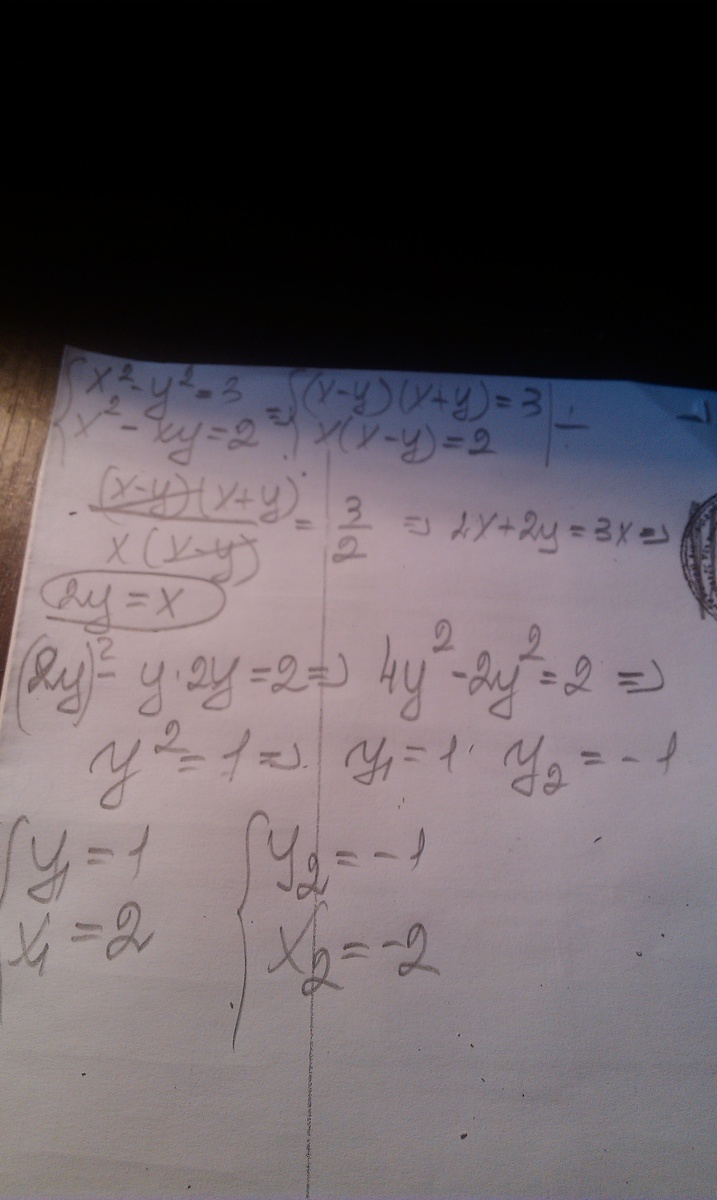 {x² - y² = 3 => {(x-y)(x+y) = 3 | ÷ →
{x² - xy = 2 {x(x-y) = 2
(x-y)(x+y) / x(x-y) = 3/2 => 2x+2y = 3x =>
2y = x
(2y)² - y·2y = 2 => 4y² - 2y² = 2 =>
y² = 1 => y₁ = 1 y₂ = -1
{y₁ = 1 {y₂ = -1
{x₁ = 2 {x₂ = -2